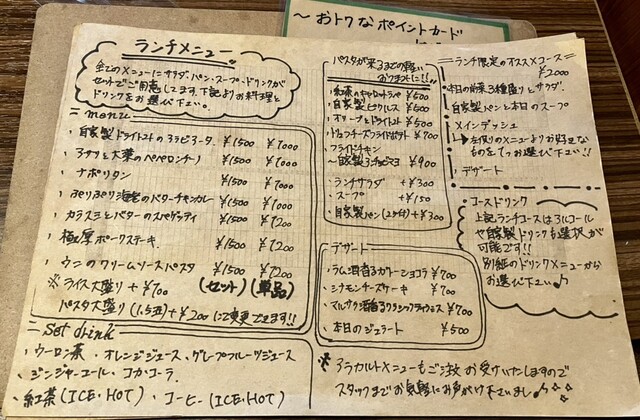 〜おトクなポイントカード
ランチメニュー
全てのメニューにサラダ、パン・スープ・ドリンクが
セットでご用意してます。下記よりお料理と
ドリンクをお選び下さい。
= menu
・自家製ドライトマトのアラビアータ ¥1500 ¥1000
・アサリと大葉のペペロンチーノ ¥1500 ¥1000
・ナポリタン ¥1500 ¥1000
・ぷりぷり海老のバターチキンカレー ¥1500 ¥1000
・カラスミとバターのスパゲッティ ¥1500 ¥1200
・極厚ポークステーキ ¥1500 ¥1200
・ウニのクリームソースパスタ ¥1500 ¥1200
(セット) (単品)
※ライス大盛り +¥100
パスタ大盛り (1.5玉) +¥200 にて変更できます!!
= Set drink
・ウーロン茶・オレンジジュース、グレープフルーツジュース
・ジンジャーエール・コカコーラ
・紅茶 (ICE・HOT) ・コーヒー (ICE・HOT)
パスタが来るまでの軽い
おつまみに!!
・紅茶のキャロットラペ ¥500
・自家製ピクルス ¥500
・オリーブとドライトマト ¥500
・トリュフチーズフライドポテト ¥700
・フライドチキン
〜自家製 ¥900
・ランチサラダ +¥300
・スープ +¥150
・自家製パン(2ヶ付) +¥300
デザート
・ラム酒香るガトーショコラ ¥700
・シナモンチーズケーキ ¥700
・マルサラ酒香るクラシックティラミス ¥700
・本日のジェラート ¥500
※アラカルトメニューもご注文お受けいたしますので
スタッフまでお気軽にお声がけ下さいませ♪
=ランチ限定のオススメコース=
¥2000
・本日の前菜3種盛りとサラダ
・自家製パンと本日のスープ
・メインディッシュ
左側のメニューよりお好きな
ものを1つお選び下さい!!
・デザート
コースドリンク
上記ランチコースはアルコール
や自家製ドリンクも選択が
可能です!!
別紙のドリンクメニューから
お選び下さい♪